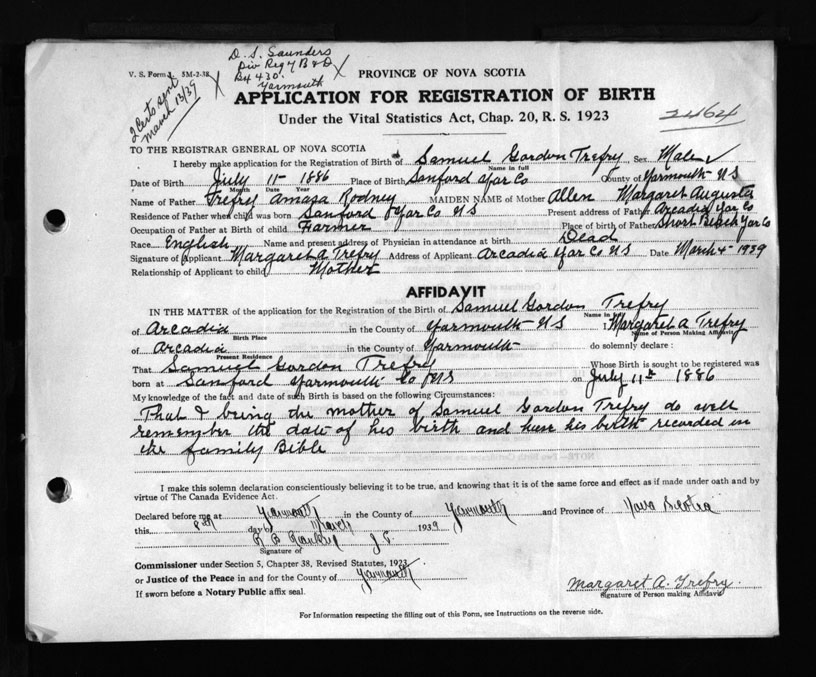 D. S. Saunders
Div Reg of B & D
Bx 430.
Yarmouth
V. S. Form 5M-2-38
2 Certs sent
March 13/39
PROVINCE OF NOVA SCOTIA
APPLICATION FOR REGISTRATION OF BIRTH
Under the Vital Statistics Act, Chap. 20, R. S. 1923
2464
TO THE REGISTRAR GENERAL OF NOVA SCOTIA
I hereby make application for the Registration of Birth of Samuel Gordon Trefry Sex Male
Name in full
Date of Birth July 11 1886 Place of Birth Sanford Yar Co County of Yarmouth NS
Month Date Year
Name of Father Trefry Amaza Rodney MAIDEN NAME of Mother Allen Margaret Augusta
Residence of Father when child was born Sanford Yar Co NS Present address of Father Arcadia Yar Co
Occupation of Father at Birth of child Farmer Place of birth of Father Short Beach Yar Co
Race English Name and present address of Physician in attendance at birth Dead
Signature of Applicant Margaret A Trefry Address of Applicant Arcadia Yar Co NS Date March 4 1939
Relationship of Applicant to child Mother
AFFIDAVIT
IN THE MATTER of the application for the Registration of the Birth of Samuel Gordon Trefry
Name in full
of Arcadia in the County of Yarmouth NS I Margaret A Trefry
Birth Place Name of Person Making Affidavit
of Arcadia in the County of Yarmouth do solemnly declare :
Present Residence
That Samuel Gordon Trefry Whose Birth is sought to be registered was
born at Sanford Yarmouth Co NS on July 11th 1886
My knowledge of the fact and date of such Birth is based on the following Circumstances:
That I being the mother of Samuel Gordon Trefry do well
remember the date of his birth and have his birth recorded in
the family Bible
I make this solemn declaration conscientiously believing it to be true, and knowing that it is of the same force and effect as if made under oath and by
virtue of The Canada Evidence Act.
Declared before me at Yarmouth in the County of Yarmouth and Province of Nova Scotia
this 8th day of March 1939
J. P.
Signature of
Commissioner under Section 5, Chapter 38, Revised Statutes, 1923
or Justice of the Peace in and for the County of Yarmouth
If sworn before a Notary Public affix seal.
Margaret A. Trefry.
Signature of Person making Affidavit
For Information respecting the filling out of this Form, see Instructions on the reverse side.